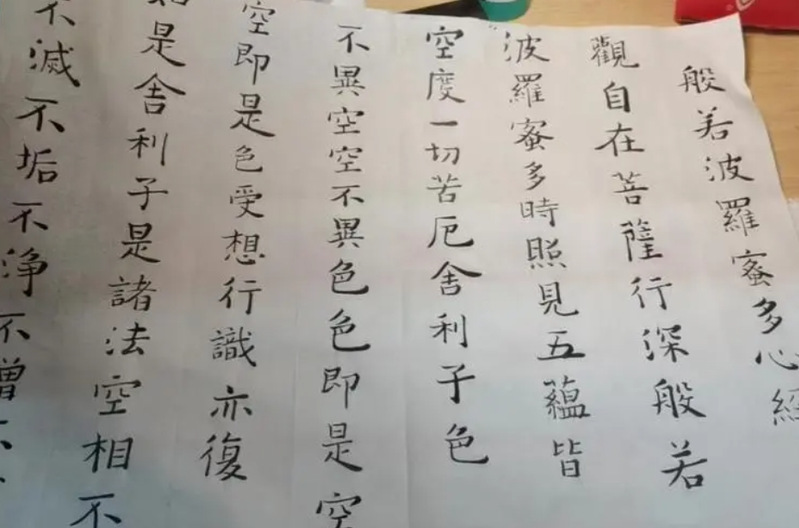 般若波羅蜜多心經
觀自在菩薩行深般若
波羅蜜多時照見五蘊皆
空度一切苦厄舍利子色
不異空空不異色色即是空
空即是色受想行識亦復
如是舍利子是諸法空相不
不滅不垢不淨不增不